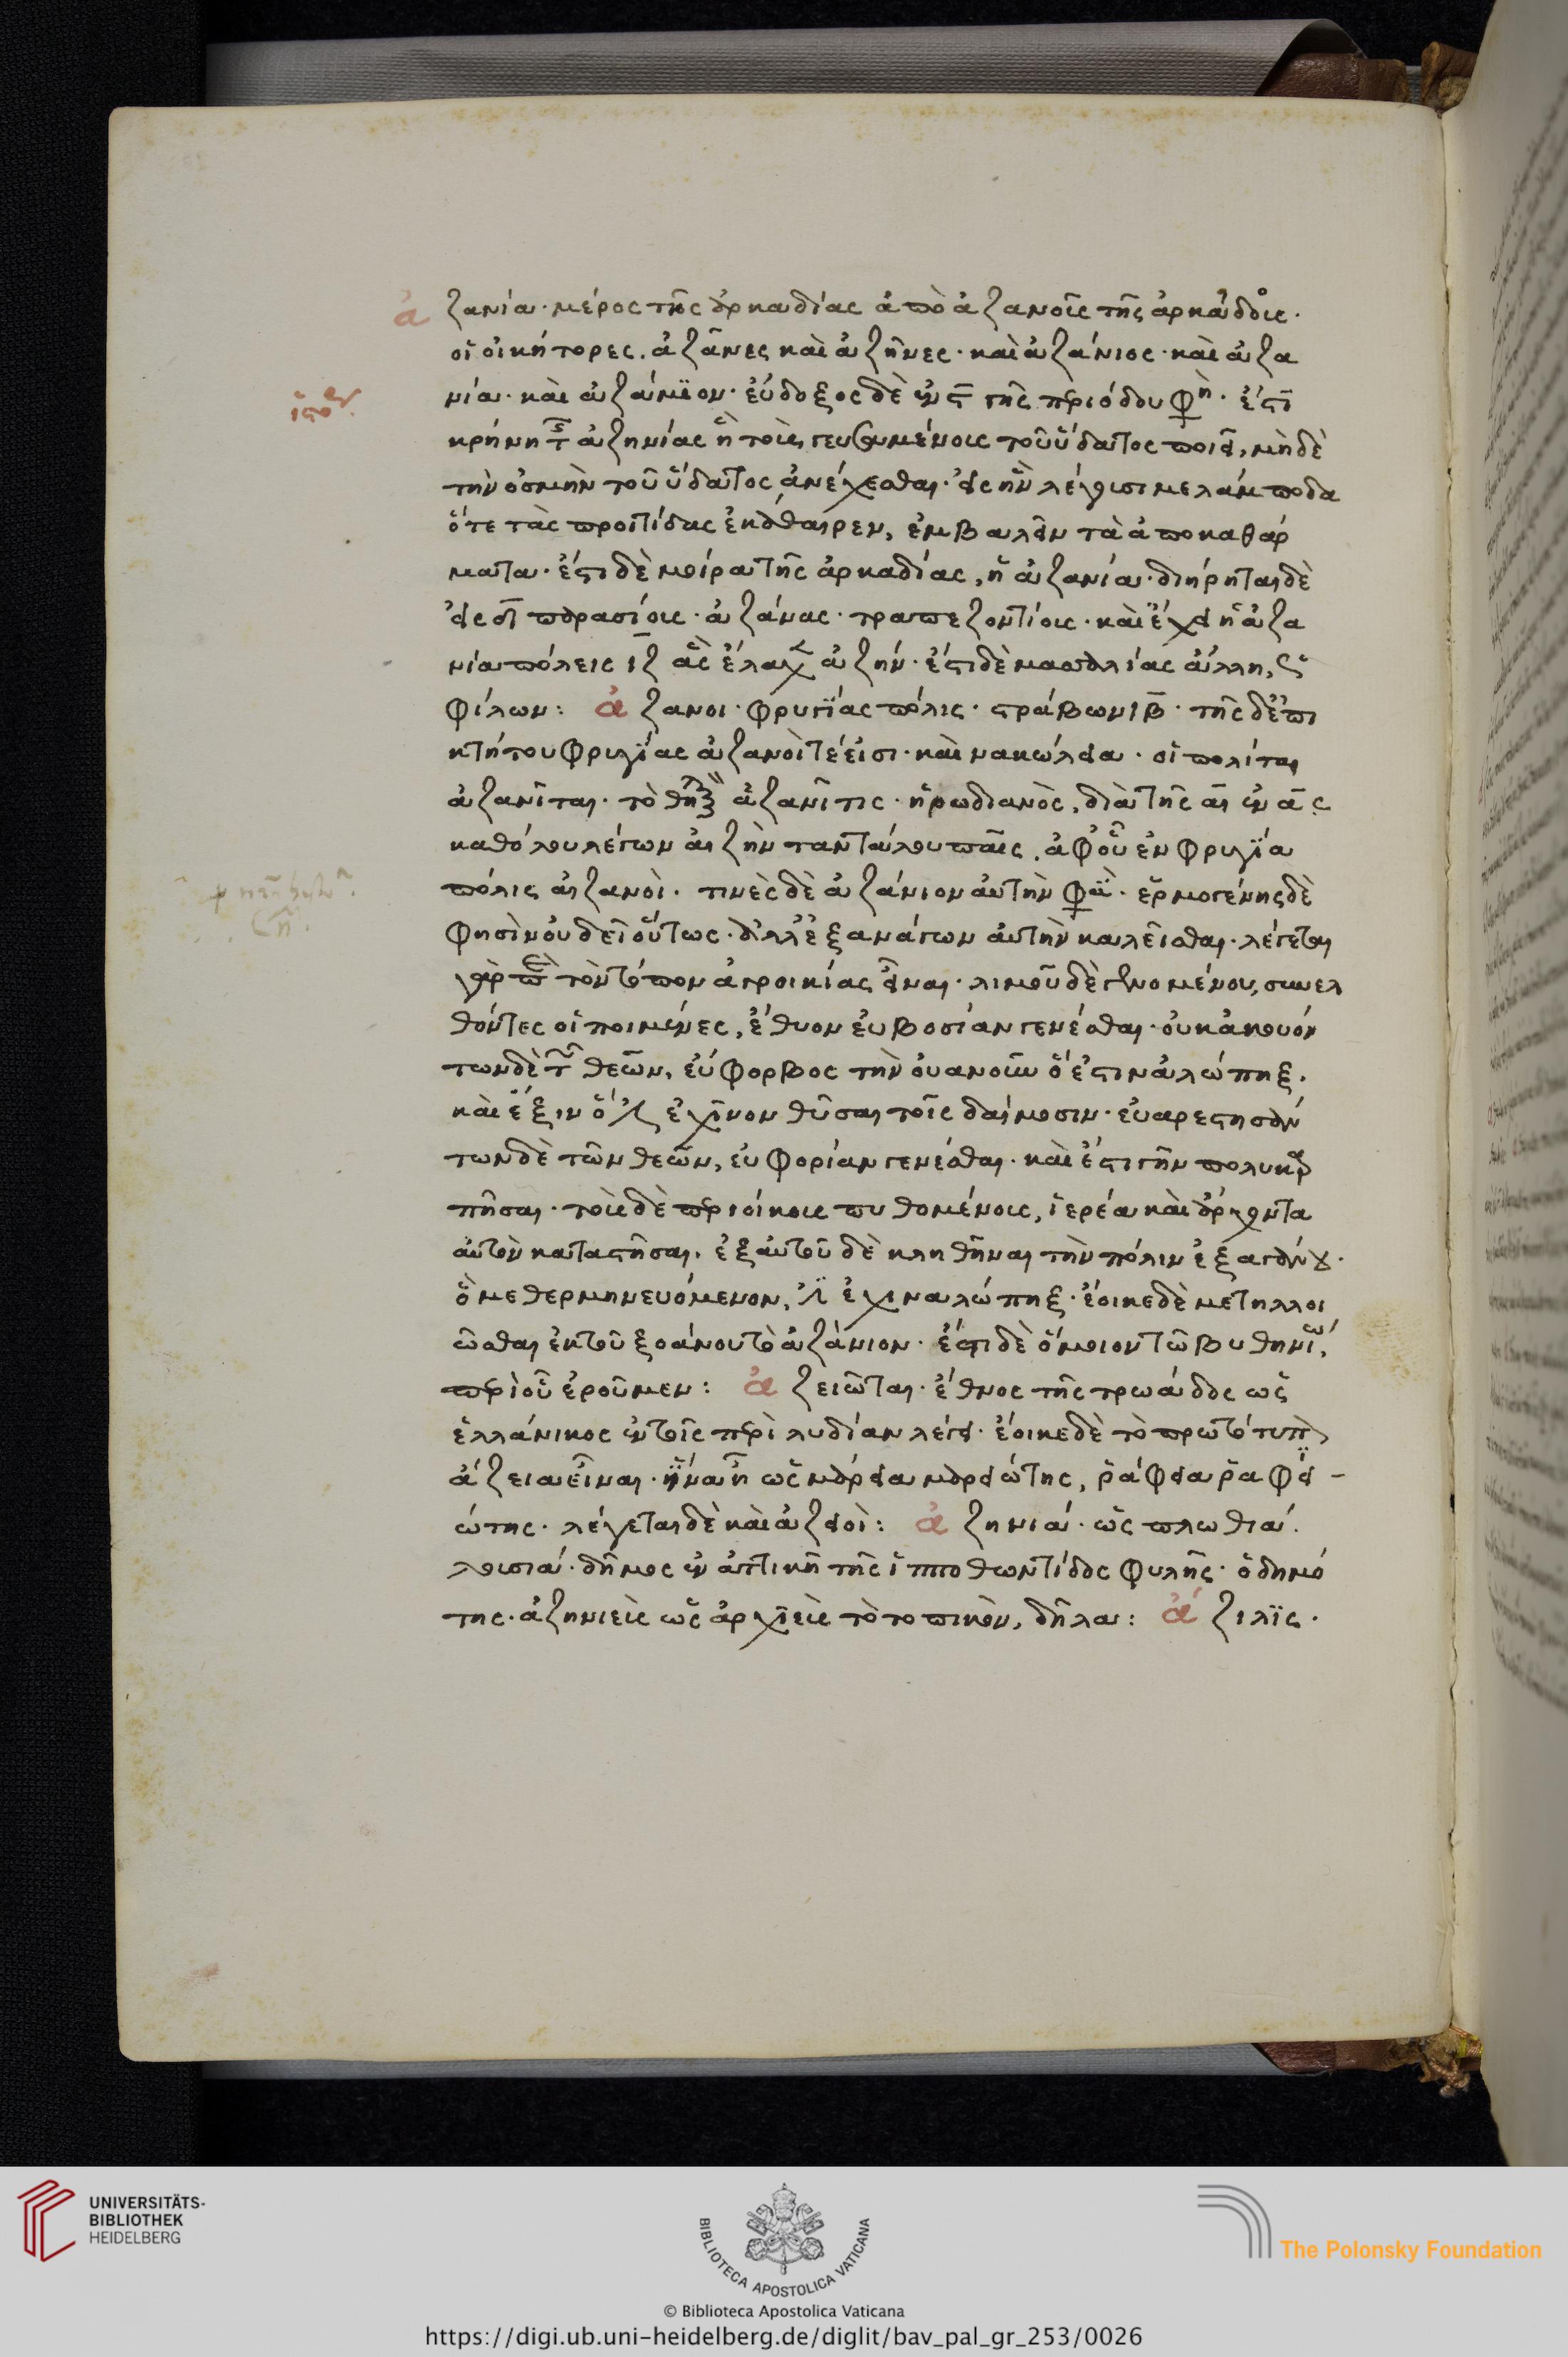 ἀζανία· μέρος τῆς ἀρκαδίας ἀπὸ ἀζανοῖς τῆς ἀρκάδος·
οἱ οἰκήτορες. ἀζᾶνες καὶ ἀζῆνες· καὶ ἀζάνιος· καὶ ἀζα
νία· καὶ ἀζάνιον· εὔδοξος δὲ ἐν ϛ γῆς περιόδου φη· ἔστι
κρήνη τῆς ἀζηνίας ἣ τοὺς γευσαμένους τοῦ ὕδατος ποιεῖ, μηδὲ
τὴν ὀσμὴν τοῦ ὕδατος ἀνέχεσθαι· εἰς ἣν λέγουσι μελάμποδα
ὅτε τὰς προιτίδας ἐκάθαιρεν, ἐμβαλεῖν τὰ ἀποκαθάρ
ματα· ἔστι δὲ μοίρα τῆς ἀρκαδίας, ἡ ἀζανία· διήρηται δὲ
εἰς παρασίους· ἀζάνας· τραπεζοντίους· καὶ ἔχει ἡ ἀζα
νία πόλεις ιζ ἃς ἔλαχ ἀζήν· ἔστι δὲ μασσαλίας ἄλλη, ὡς
φίλων: ἀζανοι· φρυγίας πόλις· στράβων ιβ· τῆς δ' ἐπι
κτήτου φρυγίας ἀζανοί τέ εἰσι· καὶ νακώλεια· οἱ πολίται
ἀζανῖται· τὸ θη ἀζανῖτις· ἡρωδιανὸς, διὰ τῆς αι ἐν α ϛ
καθόλου λέγων αἰζὴν ταντάλου παῖς. ἀφ' οὗ ἐν φρυγία
πόλις αἰζανοὶ. τινὲς δὲ ἀζάνιον αὐτὴν φα· ἑρμογένης δὲ
φησὶν οὐ δεῖ οὕτως· ἀλλ' ἐξανάγων αὐτὴν καλεῖσθαι· λέγεται
γὰρ τὸν τόπον ἀγροικίας εἶναι· λιμοῦ δὲ γενομένου, συνελ
θόντες οἱ ποιμένες, ἔθυον εὐβοσίαν γενέσθαι· οὐκ ἀκουόν
των δὲ τῶν θεῶν, εὔφορβος τὴν οὐανοῦν ὅ ἐστιν ἀλώπηξ.
καὶ ἔξιν ὅ ἐστι ἐχῖνον θῦσαι τοῖς δαίμοσιν· εὐαρεστησάν
των δὲ τῶν θεῶν, εὐφορίαν γενέσθαι· καὶ ἔστι γῆν πολυκαρ
πῆσαι· τοὺς δὲ περιοίκους πυθομένους, ἱερέα καὶ ἄρχοντα
αὐτὸν καταστῆσαι. ἐξ αὐτοῦ δὲ κληθῆναι τὴν πόλιν ἐξαγάνου·
ὃ μεθερμηνευόμενον, ἐστὶ ἐχιναλώπηξ· ἔοικε δὲ μετηλλοι
ῶσθαι ἐκ τοῦ ξοάνου τὸ ἀζάνιον· ἔστι δὲ ὅμοιον τῶ βυθηνίω,
περὶ οὗ ἐροῦμεν: ἀζειῶται· ἔθνος τῆς τρωάδος ὡς
ἑλλάνικος ἐν τοῖς περὶ λυδίαν λέγει· ἔοικε δὲ τὸ πρωτότυπον
ἄζεια εἶναι· ἵνα ἦ ὡς μάρεια μαρειώτης, ῥάφεια ῥαφει-
ώτης· λέγεται δὲ καὶ ἀζειοὶ: ἀζηνιά· ὡς πλωθιά.
λουσιά· δῆμος ἐν ἀττικῆ τῆς ἱπποθωντίδος φυλῆς· ὁ δημό
της· ἀζηνιεὺς ὡς ἀρχιεὺς τὸ τοπικὸν, δῆλα: ἀζιλὶς·
UNIVERSITÄTS-
BIBLIOTHEK
HEIDELBERG
BIBLIOTECA APOSTOLICA VATICANA
The Polonsky Foundation
© Biblioteca Apostolica Vaticana
https://digi.ub.uni-heidelberg.de/diglit/bav_pal_gr_253/0026